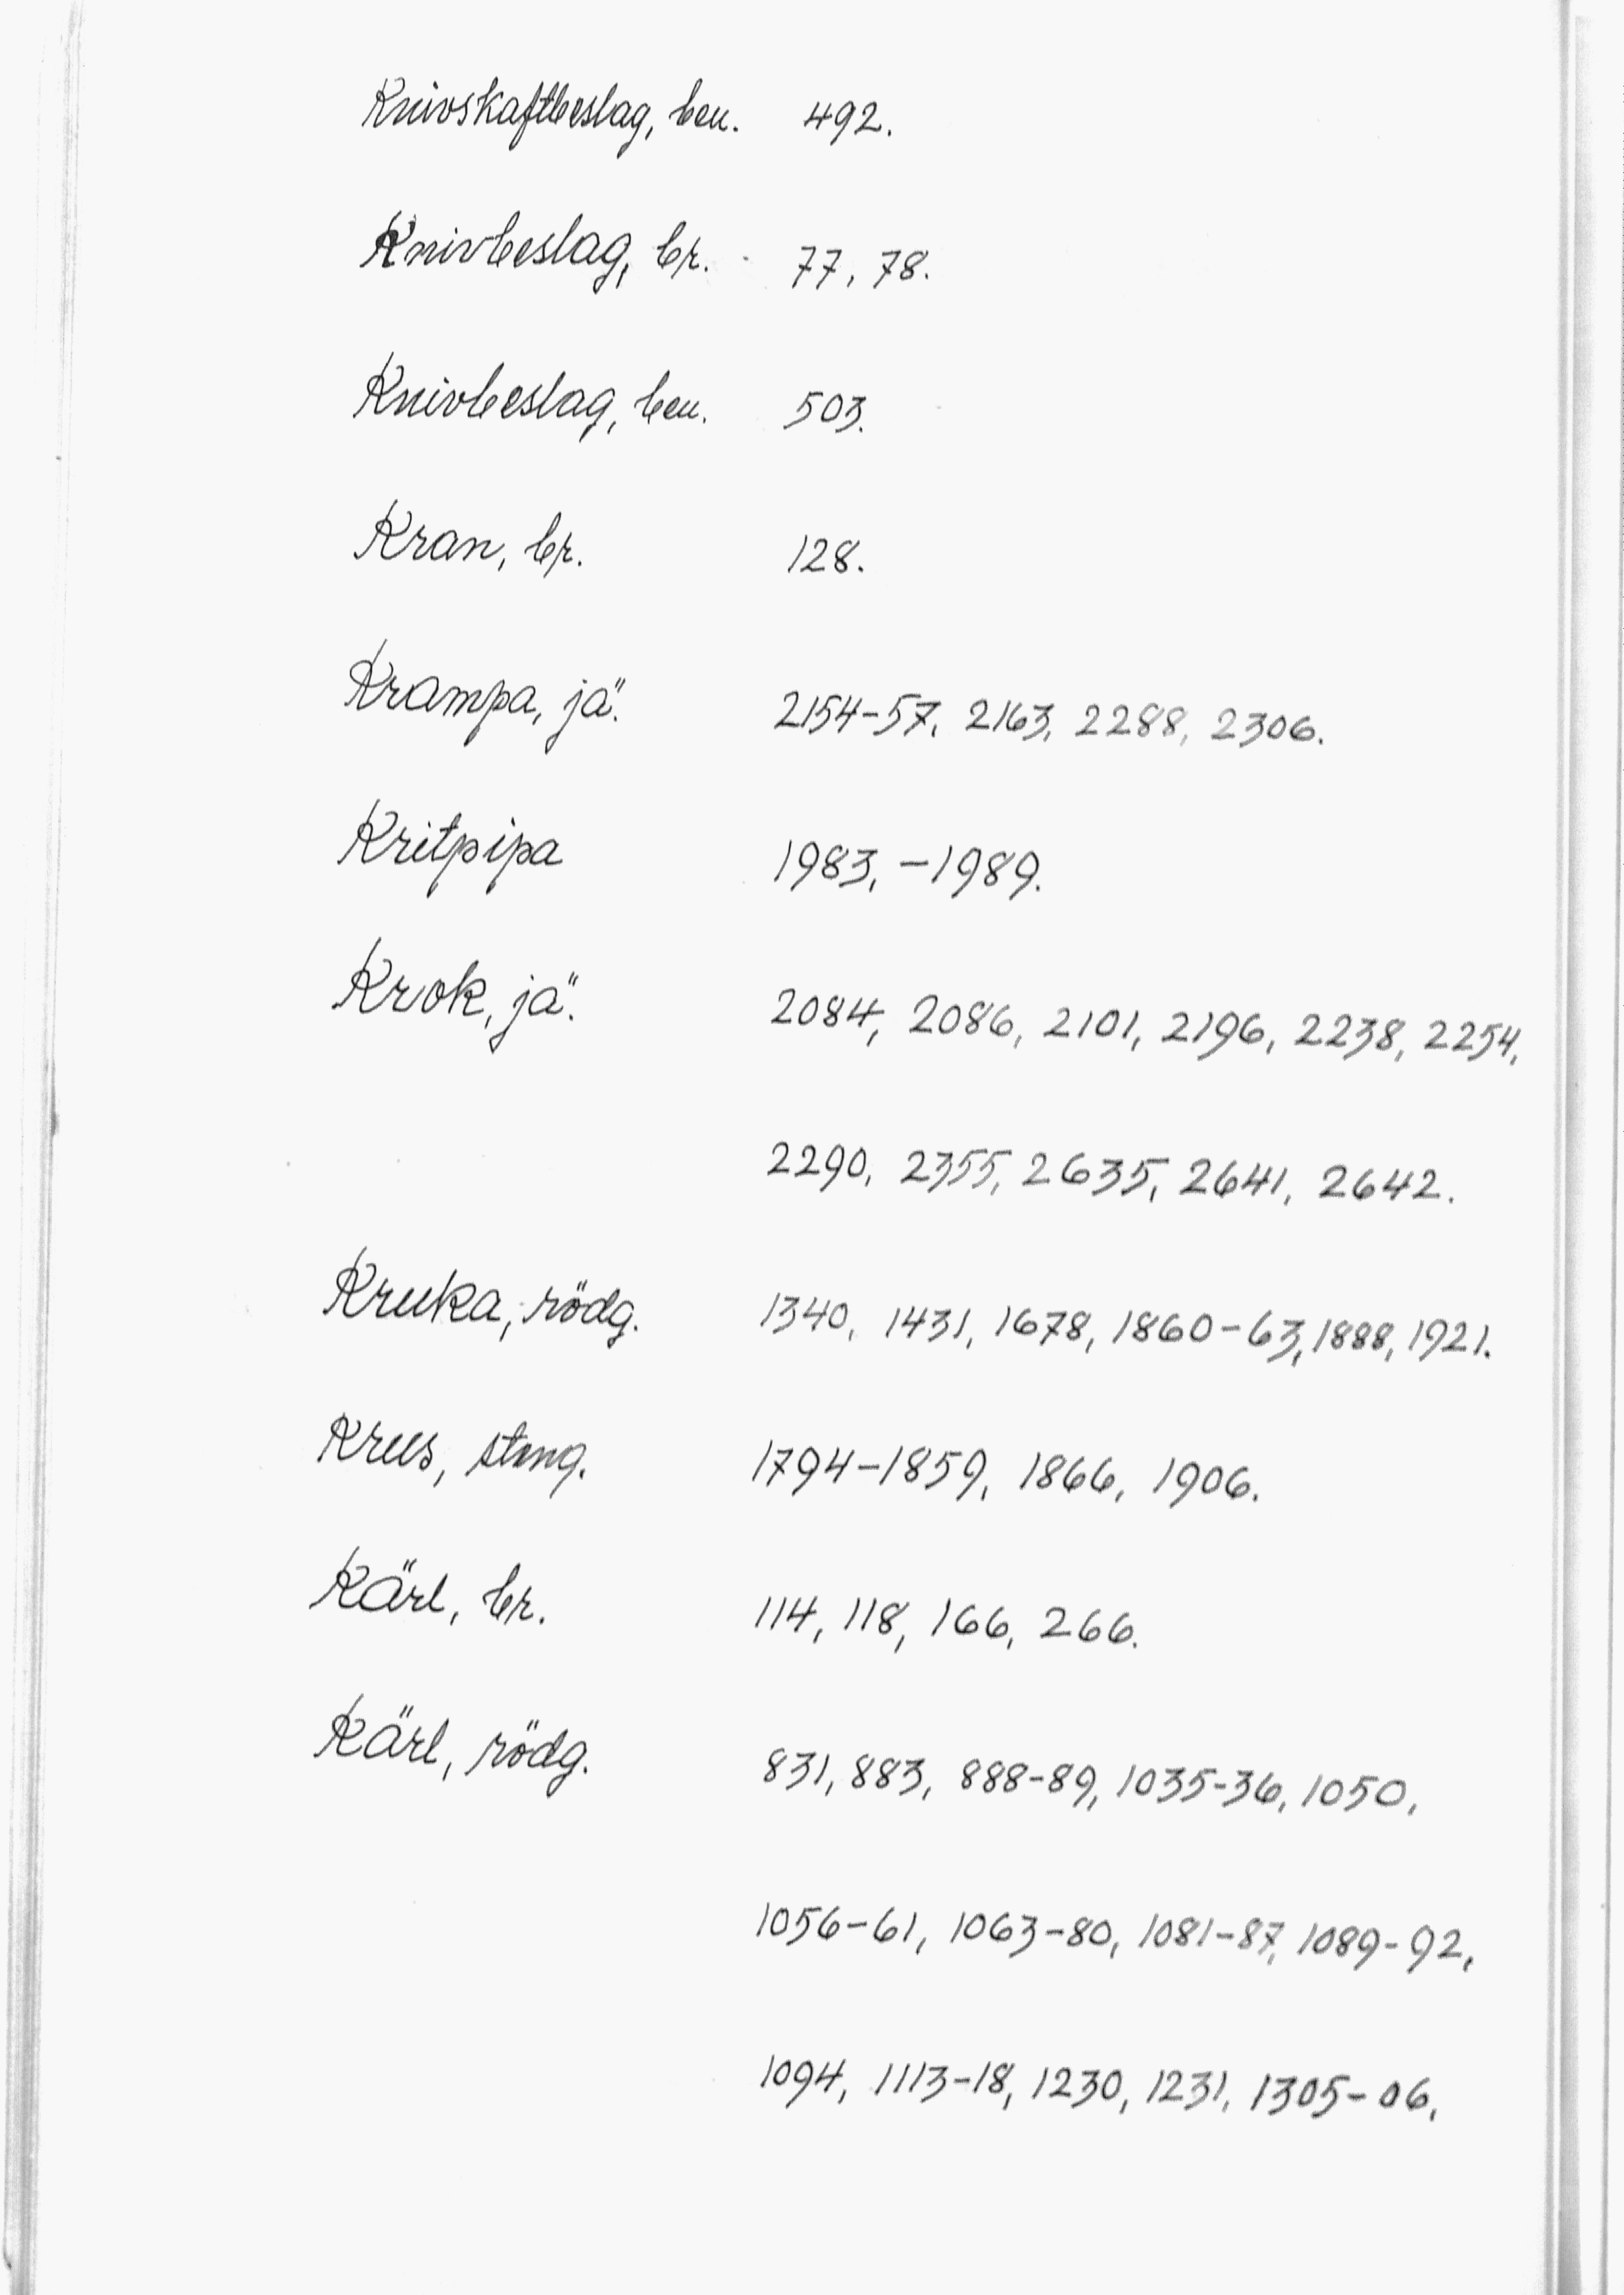 Knivskaftbeslag, ben. 492.
Knivbeslag, br. 77, 78.
Knivbeslag, ben. 503.
Kran, br. 128.
Krampa, jä. 2154-57, 2163, 2288, 2306.
Kritpipa 1983, -1989.
Krok, jä. 2084, 2086, 2101, 2196, 2238, 2254,
2290, 2355, 2635, 2641, 2642.
Kruka, rödg. 1340, 1431, 1678, 1860-63, 1888, 1921.
Krus, steng. 1794-1859, 1866, 1906.
Kärl, br. 114, 118, 166, 266.
Kärl, rödg. 831, 883, 888-89, 1035-36, 1050,
1056-61, 1063-80, 1081-87, 1089-92,
1094, 1113-18, 1230, 1231, 1305-06,